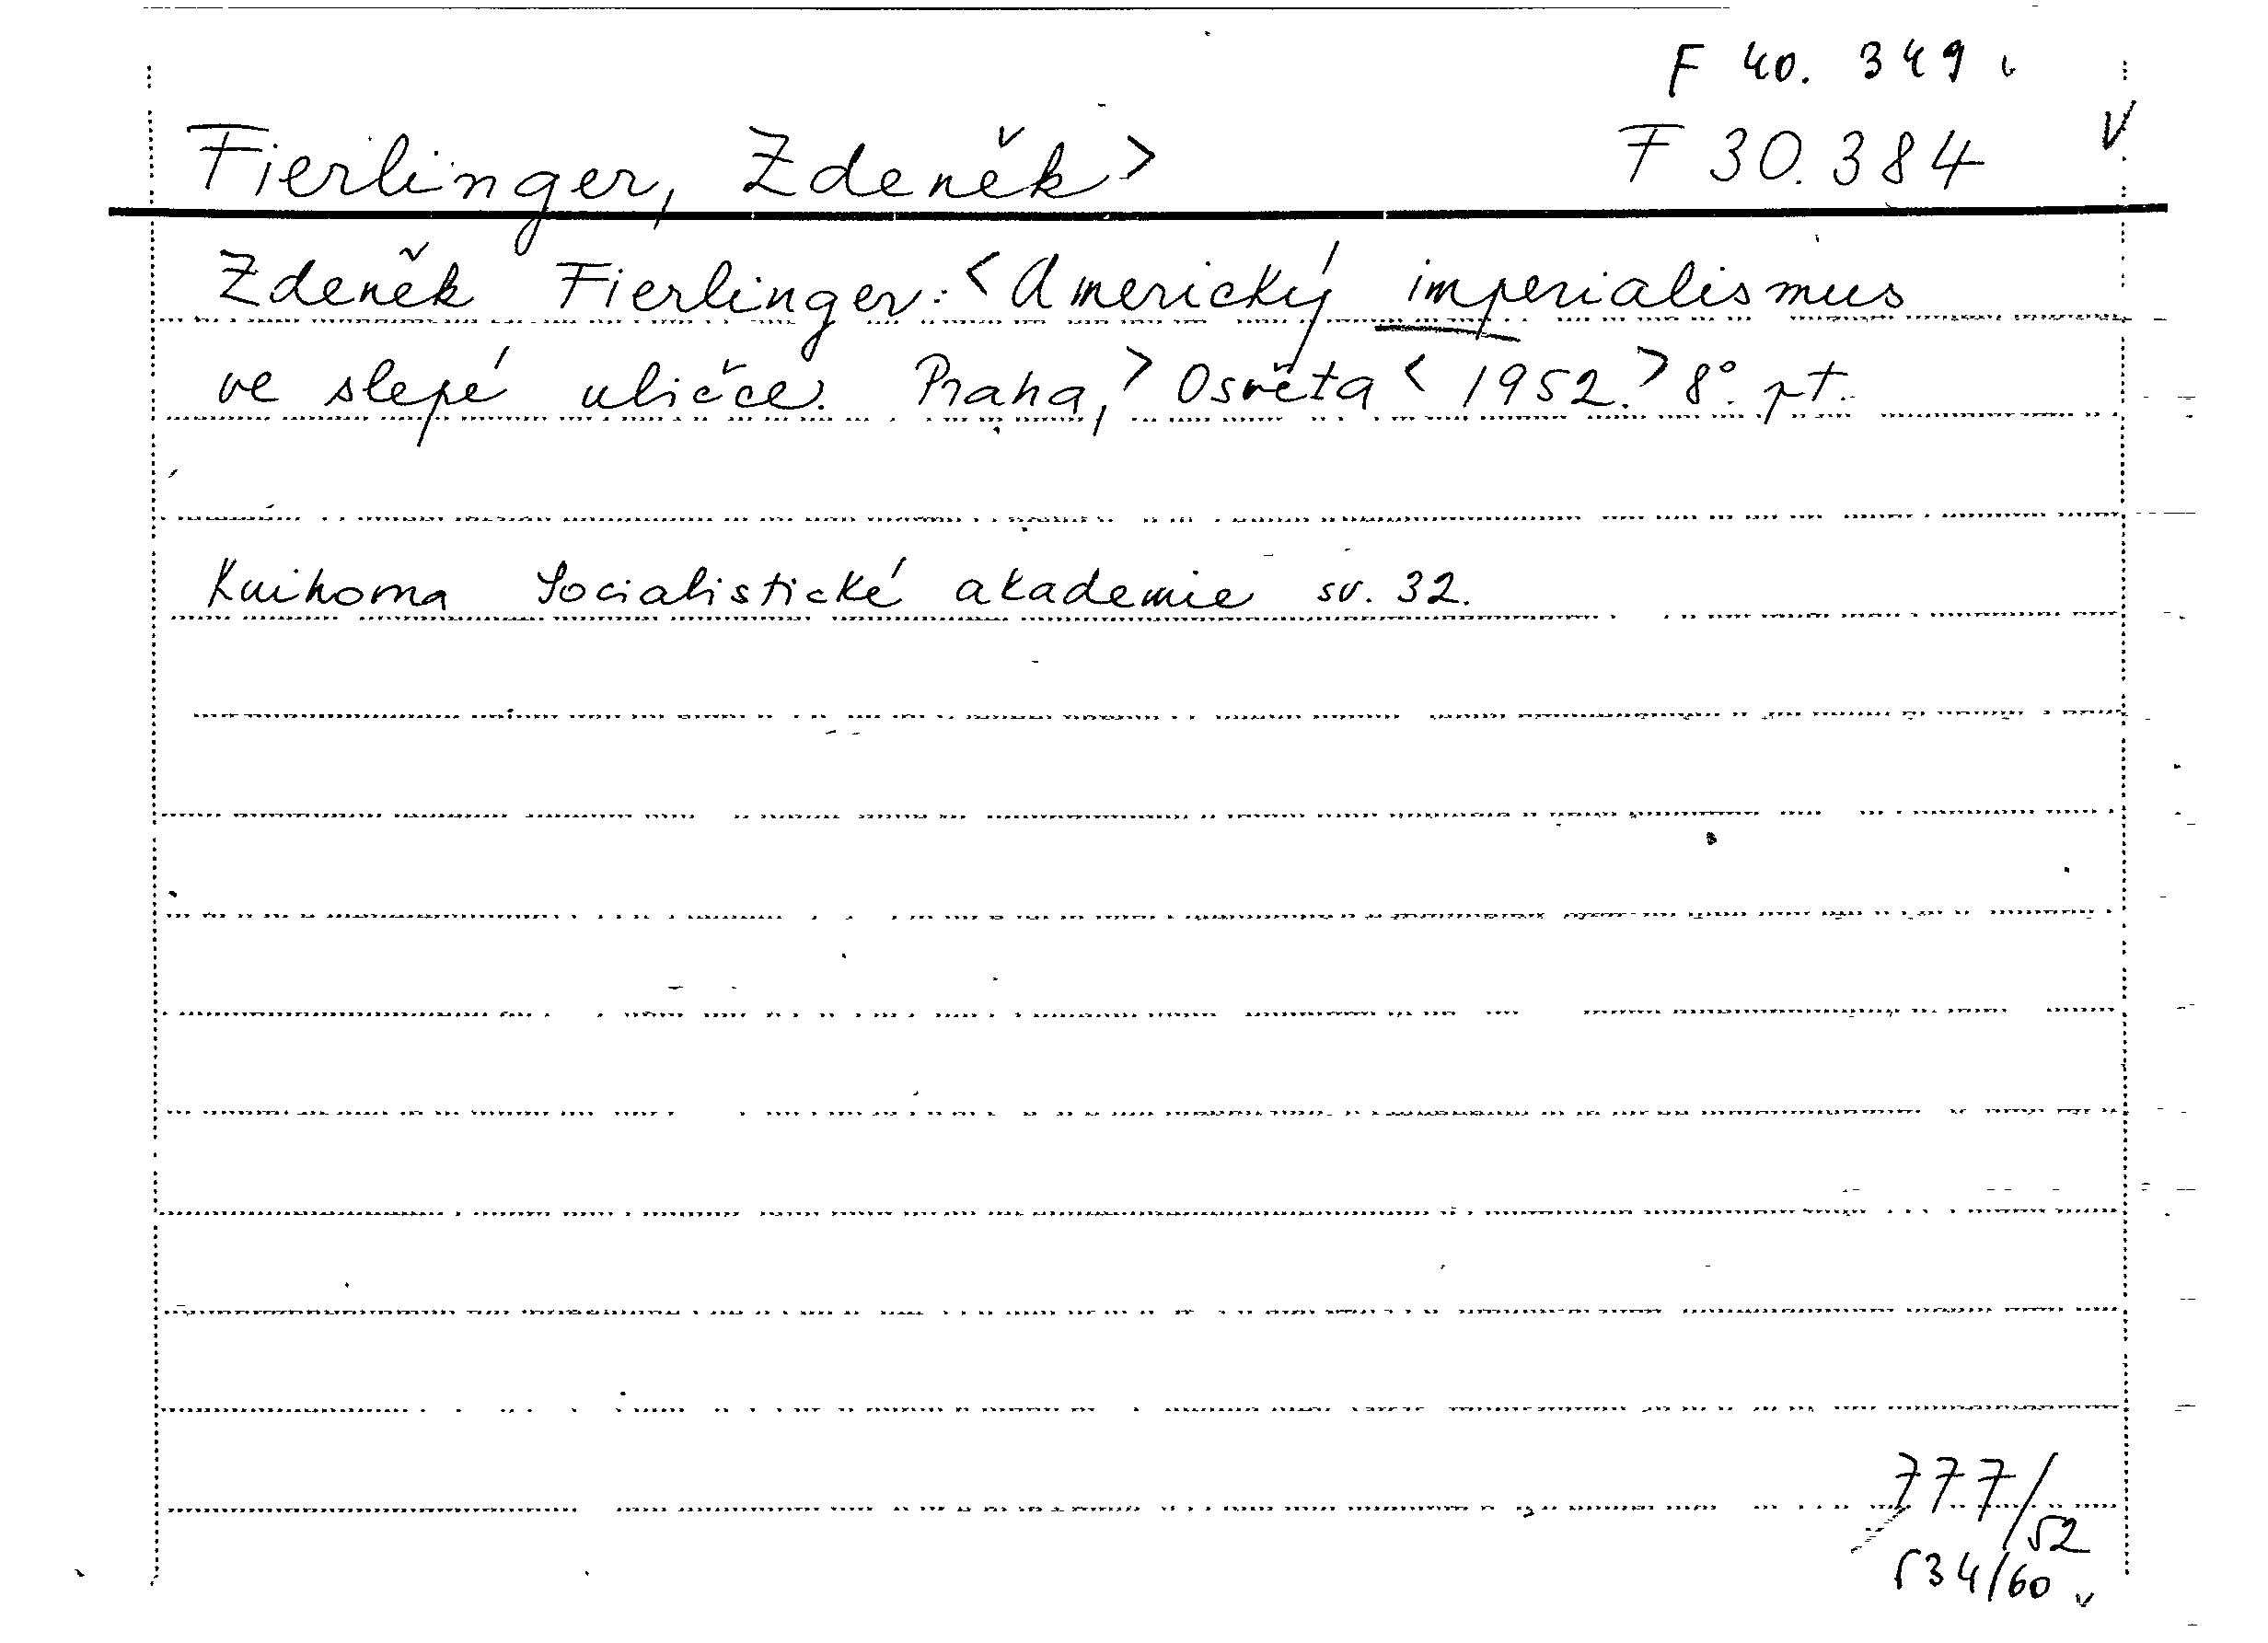 F 40. 349 v
Fierlinger, Zdeněk> F 30.384 v
Zdeněk Fierlinger: <Americký imperialismus
ve slepé uličce. Praha,> Osvěta < 1952.> 8°. pt.
Knihovna Socialistické akademie sv. 32.
777/52
534/60 v